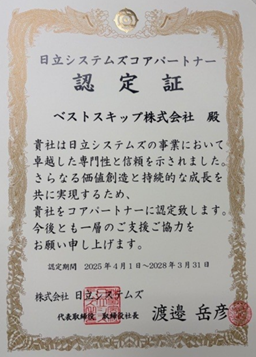 日立システムズコアパートナー
認定証
ベストスキップ株式会社 殿
貴社は日立システムズの事業において
卓越した専門性と信頼を示されました。
さらなる価値創造と持続的な成長を
共に実現するため、
貴社をコアパートナーに認定致します。
今後とも一層のご支援ご協力を
お願い申し上げます。
認定期間 2025年4月1日~2028年3月31日
株式会社 日立システムズ
代表取締役 取締役社長 渡邉 岳彦